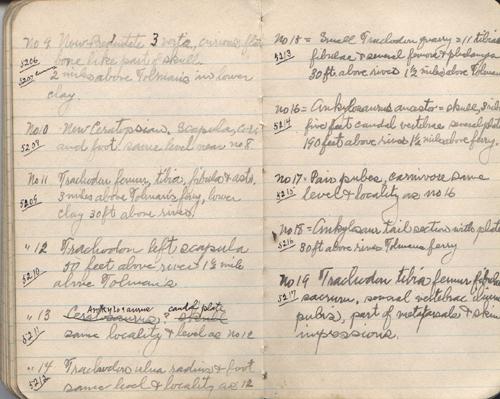 No 9 New Predentate 3 verts, curious flat
bone like part of skull
5206
5207
2 miles above Tolmans in lower
clay.
No 10 New Ceratopsian, Scapula, cora
5208
and foot same level near no 8
No 11 Trachodon femur, tibia, fibula & ast.
5209
3 miles above Tolmans ferry, lower
clay 30 ft above river.
" 12 Trachodon left scapula
5210
50 feet above river 1½ mile
above Tolman's
Ankylosaurus caudal plate
" 13
5211
same locality & level as no 12
" 14 Trachodon ulna radius & foot
5212
same level & locality as 12
No 15 = Small Trachodon quarry = 11 tibias
5213
fibulae & several femora & phalanges
30 ft above river 1½ miles above Tolman
No 16 = Ankylosaurus = skull,
5214
five feet caudal vertebrae several plates
140 feet above river 1½ miles above ferry.
No 17 - Pair pubes, carnivore same
5215
level & locality as no 16
No 18 = Ankylosaur tail section with plates
5216
30 ft above river Tolmans ferry
No 19 Trachodon tibia femur fibula
5217
sacrum, several vertebrae
pubis, part of metatarsals & skin
impressions.